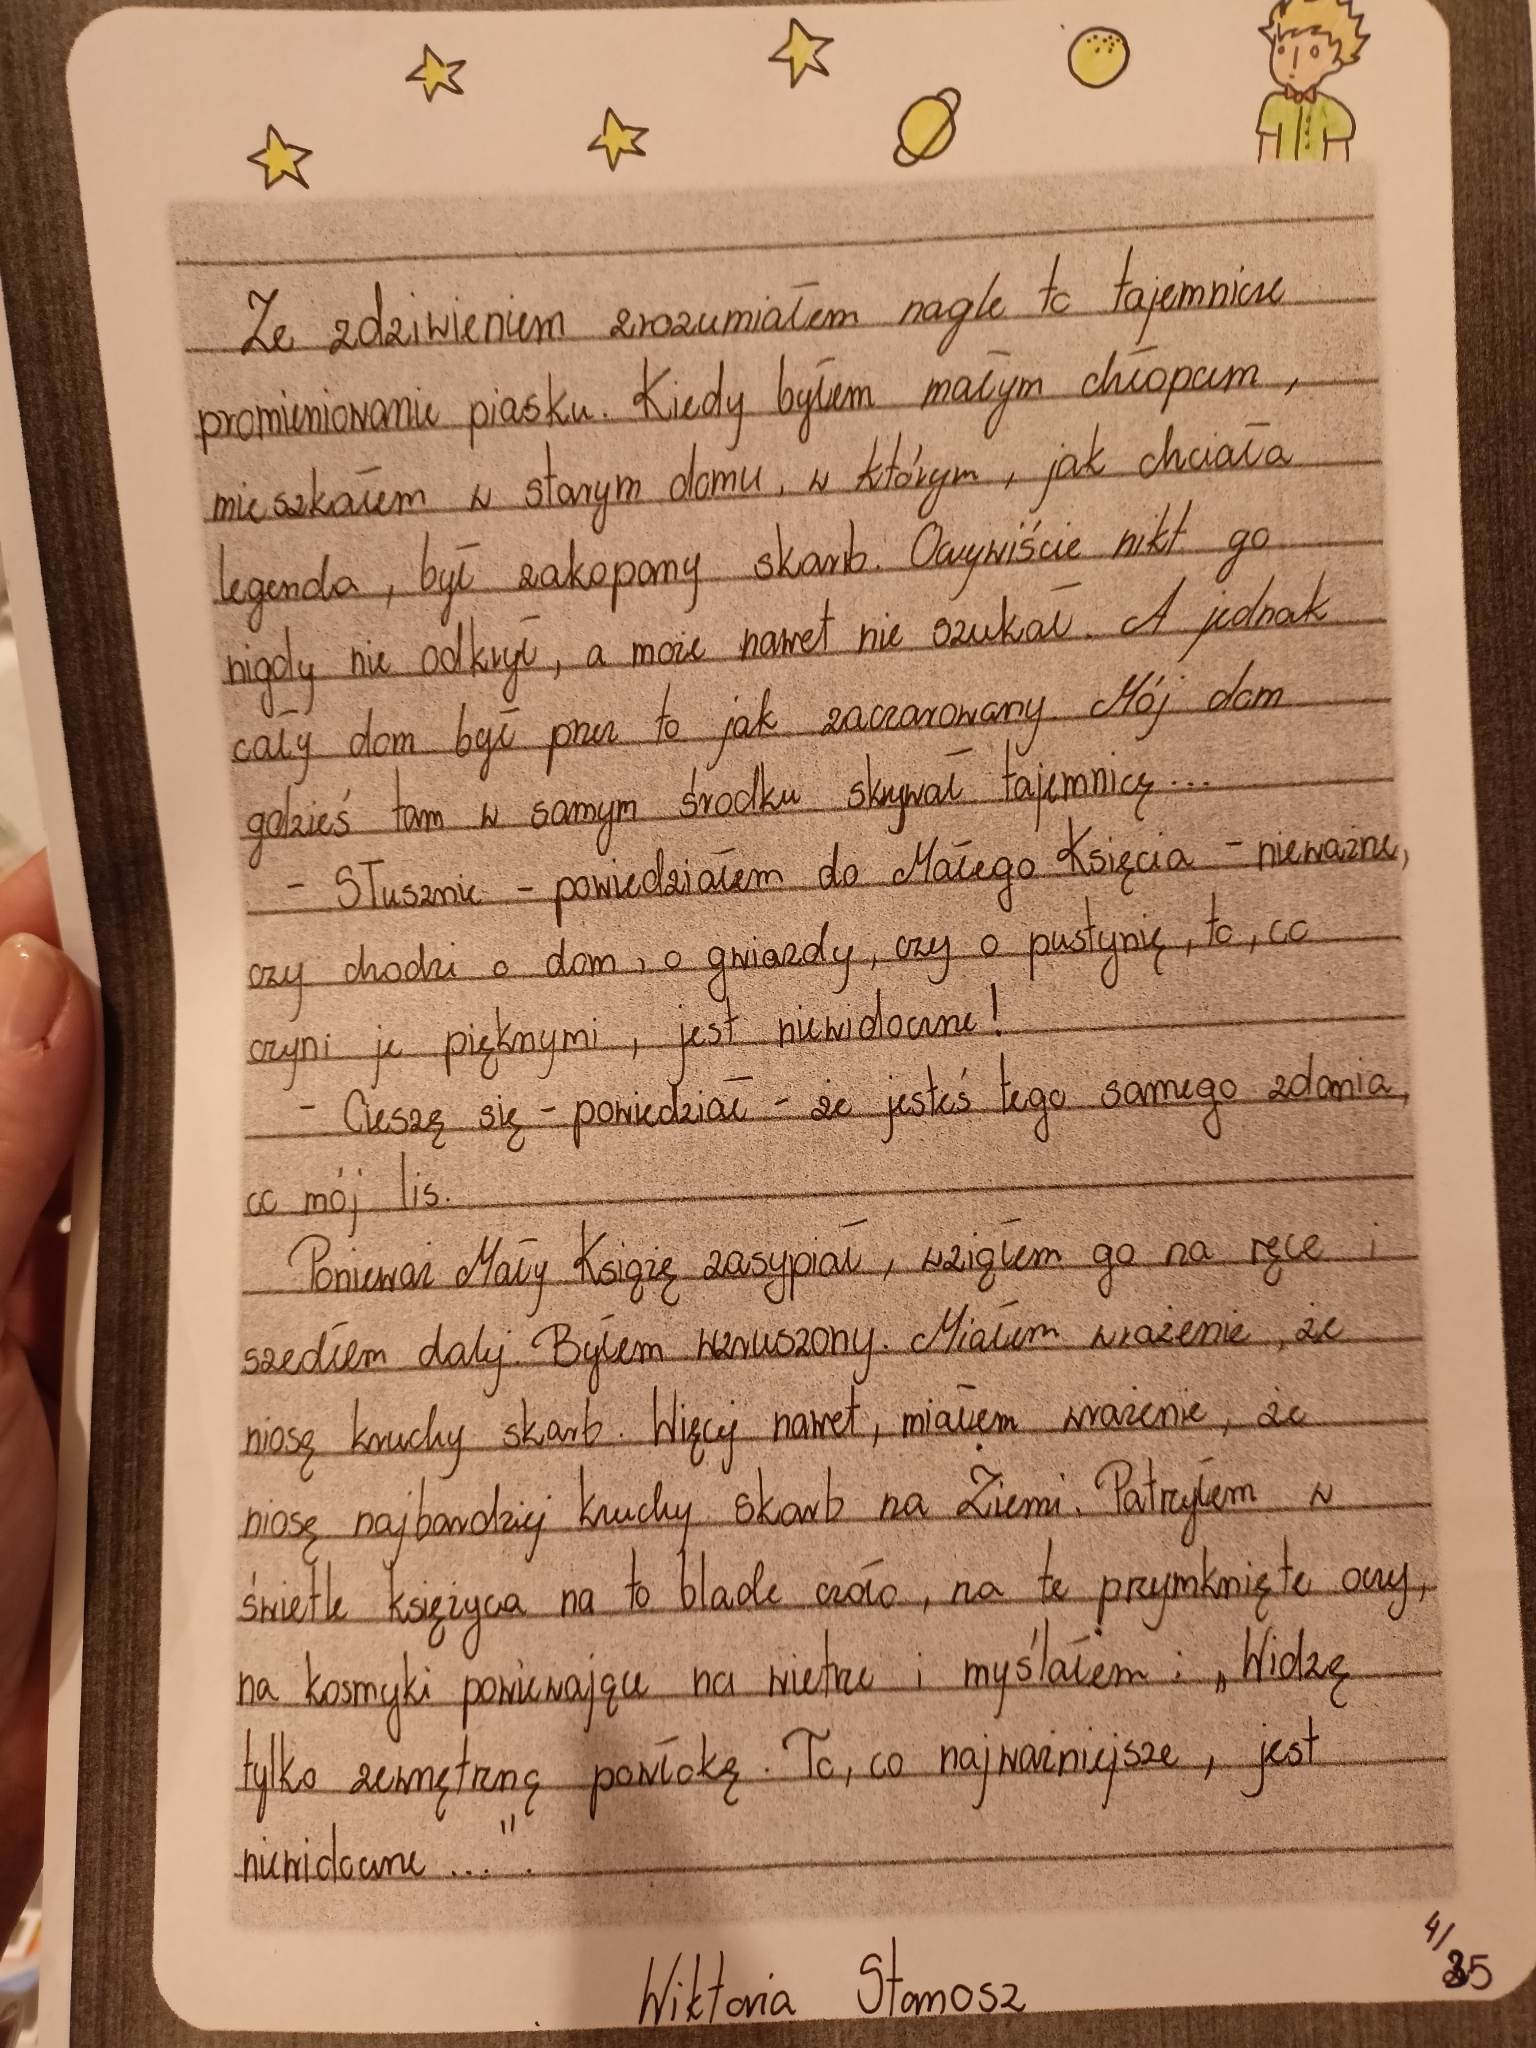 Ze zdziwieniem zrozumiałem nagle to tajemnicze
promieniowanie piasku. Kiedy byłem małym chłopcem,
mieszkałem w starym domu, w którym, jak chciała
legenda, był zakopany skarb. Oczywiście nikt go
nigdy nie odkrył, a może nawet nie szukał. A jednak
cały dom był przez to jak zaczarowany. Mój dom
gdzieś tam w samym środku skrywał tajemnicę...
- Słusznie - powiedziałem do Małego Księcia - nieważne,
czy chodzi o dom, o gwiazdy, czy o pustynię, to, co
czyni je pięknymi, jest niewidoczne!
- Cieszę się - powiedział - że jesteś tego samego zdania,
co mój lis.
Ponieważ Mały Książę zasypiał, wziąłem go na ręce i
szedłem dalej. Byłem wzruszony. Miałem wrażenie, że
niosę kruchy skarb. Więcej nawet, miałem wrażenie, że
niosę najbardziej kruchy skarb na Ziemi. Patrzyłem w
świetle księżyca na to blade czoło, na te przymknięte oczy,
na kosmyki powiewające na wietrze i myślałem: „Widzę
tylko zewnętrzną powłokę. To, co najważniejsze, jest
niewidoczne...".
4/35
Wiktoria Stamosz